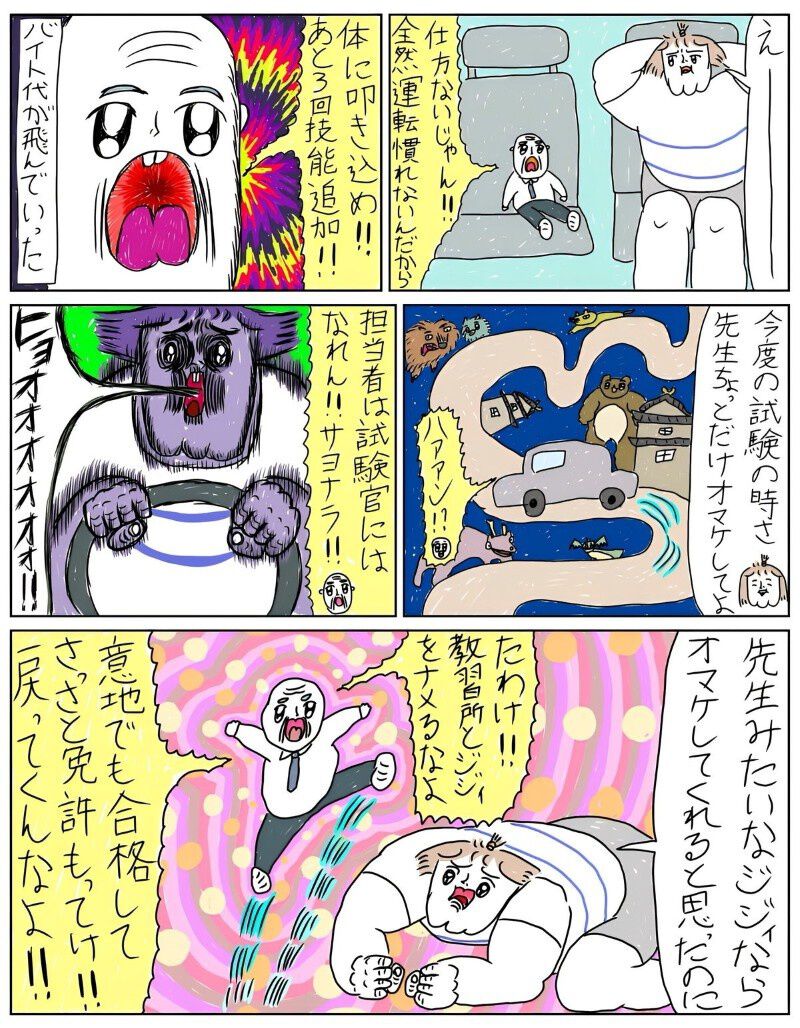 えー
仕方ないじゃん!!
全然運転慣れないんだから
体に叩き込め!!
あと3回技能追加!!
バイト代が飛んでいった
今度の試験の時さ
先生ちょっとだけオマケしてよ
ハァァン!?
担当者は試験官には
なれん!!サヨナラ!!
ヒョオオオオオォォ!!
先生みたいなジジィなら
オマケしてくれると思ったのに
たわけ!!
教習所とジジィ
をナメるなよ
意地でも合格して
さっさと免許もってけ!!
戻ってくんなよ!!